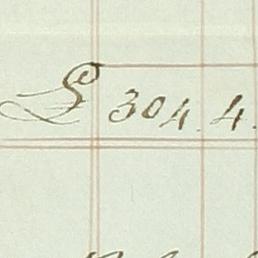 £ 304. 4.